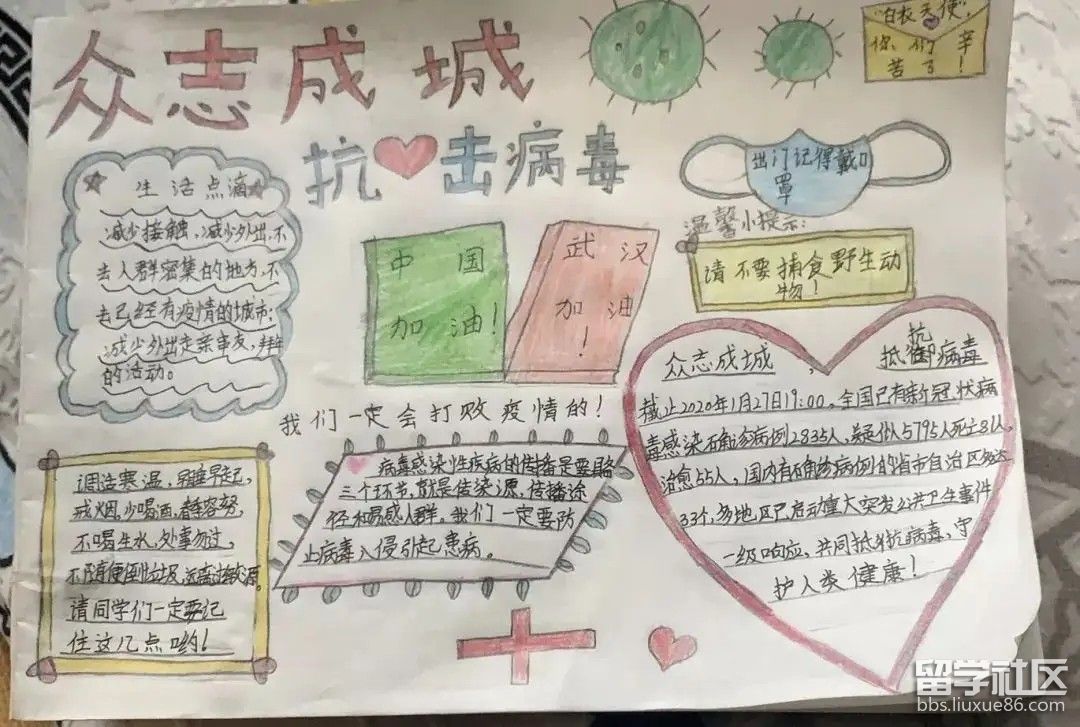 众志成城
抗击病毒
"白衣天使",
你们辛
苦了!
出门记得戴口
罩
温馨小提示:
请不要捕食野生动
物!
生活点滴
减少接触,减少外出,不
去人群密集的地方,不
去已经有疫情的城市;
减少外出走亲串友,
的活动。
中国
加油!
武汉
加油
!
我们一定会打败疫情的!
众志成城,抵御病毒
抗
截止2020年1月27日19:00,全国已有新冠状病
毒感染确诊病例2835人,疑似5795人死亡81人,
治愈55人,国内有确诊病例的省市自治区多达
33个,多地区已启动重大突发公共卫生事件
一级响应,共同抵抗病毒,守
护人类健康!
病毒感染性疾病的传播是要
三个环节,就是传染源,传播途
径和易感人群,我们一定要防
止病毒入侵引起患病。
寒温,早睡早起,
戒烟,少喝酒,
不喝生水,处事勿过,
不随便倒垃圾,
请同学们一定要记
住这几点哟!
留学社区
bbs.liuxue86.com